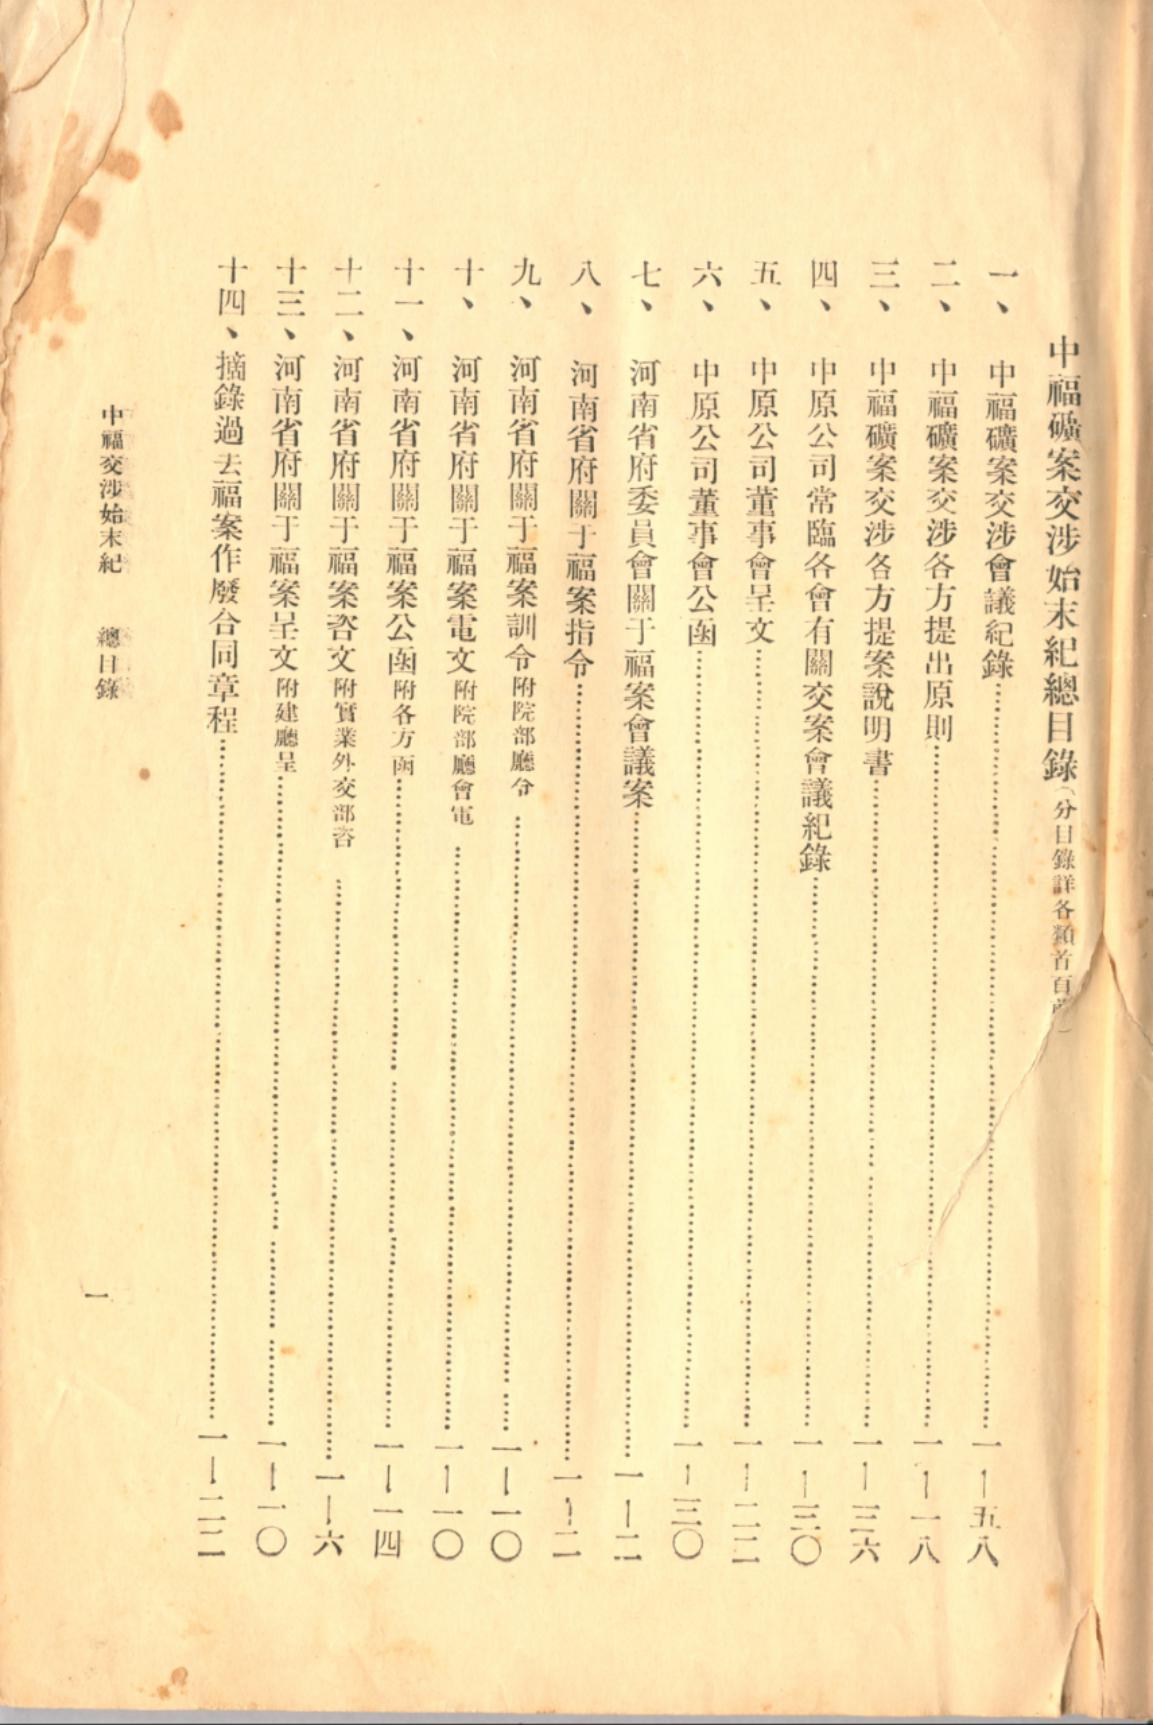 中福礦案交涉始末紀總目錄（分目錄詳各類首頁前）
一、中福礦案交涉會議紀錄⋯⋯一—五八
二、中福礦案交涉各方提出原則⋯⋯一—一八
三、中福礦案交涉各方提案說明書⋯⋯一—三六
四、中原公司常臨各會有關交案會議紀錄⋯⋯一—三〇
五、中原公司董事會呈文⋯⋯一—二二
六、中原公司董事會公函⋯⋯一—三〇
七、河南省府委員會關于福案會議案⋯⋯一—二
八、河南省府關于福案指令⋯⋯一—二
九、河南省府關于福案訓令附院部廳令⋯⋯一—一〇
十、河南省府關于福案電文附院部廳會電⋯⋯一—一〇
十一、河南省府關于福案公函附各方函⋯⋯一—一四
十二、河南省府關于福案咨文附實業外交部咨⋯⋯一—六
十三、河南省府關于福案呈文附建廳呈⋯⋯一—一〇
十四、摘錄過去福案作廢合同章程⋯⋯一—二二
中福交涉始末紀　總目錄　一